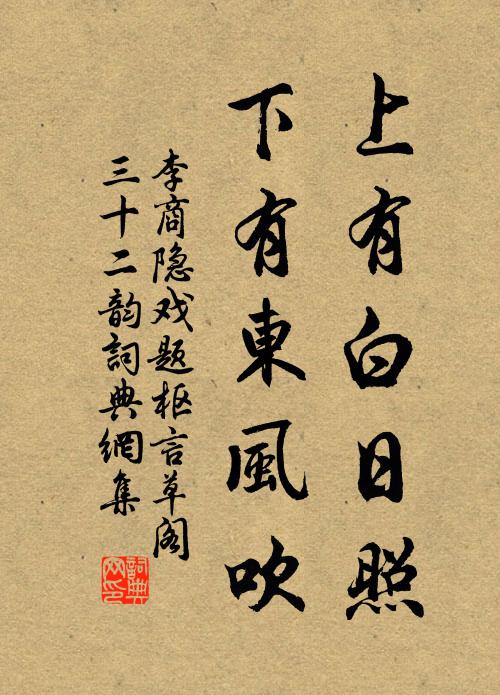 上有白日照
下有東風吹
李商隐戏题枢言草阁
三十二韵詞典網集
詞典网印